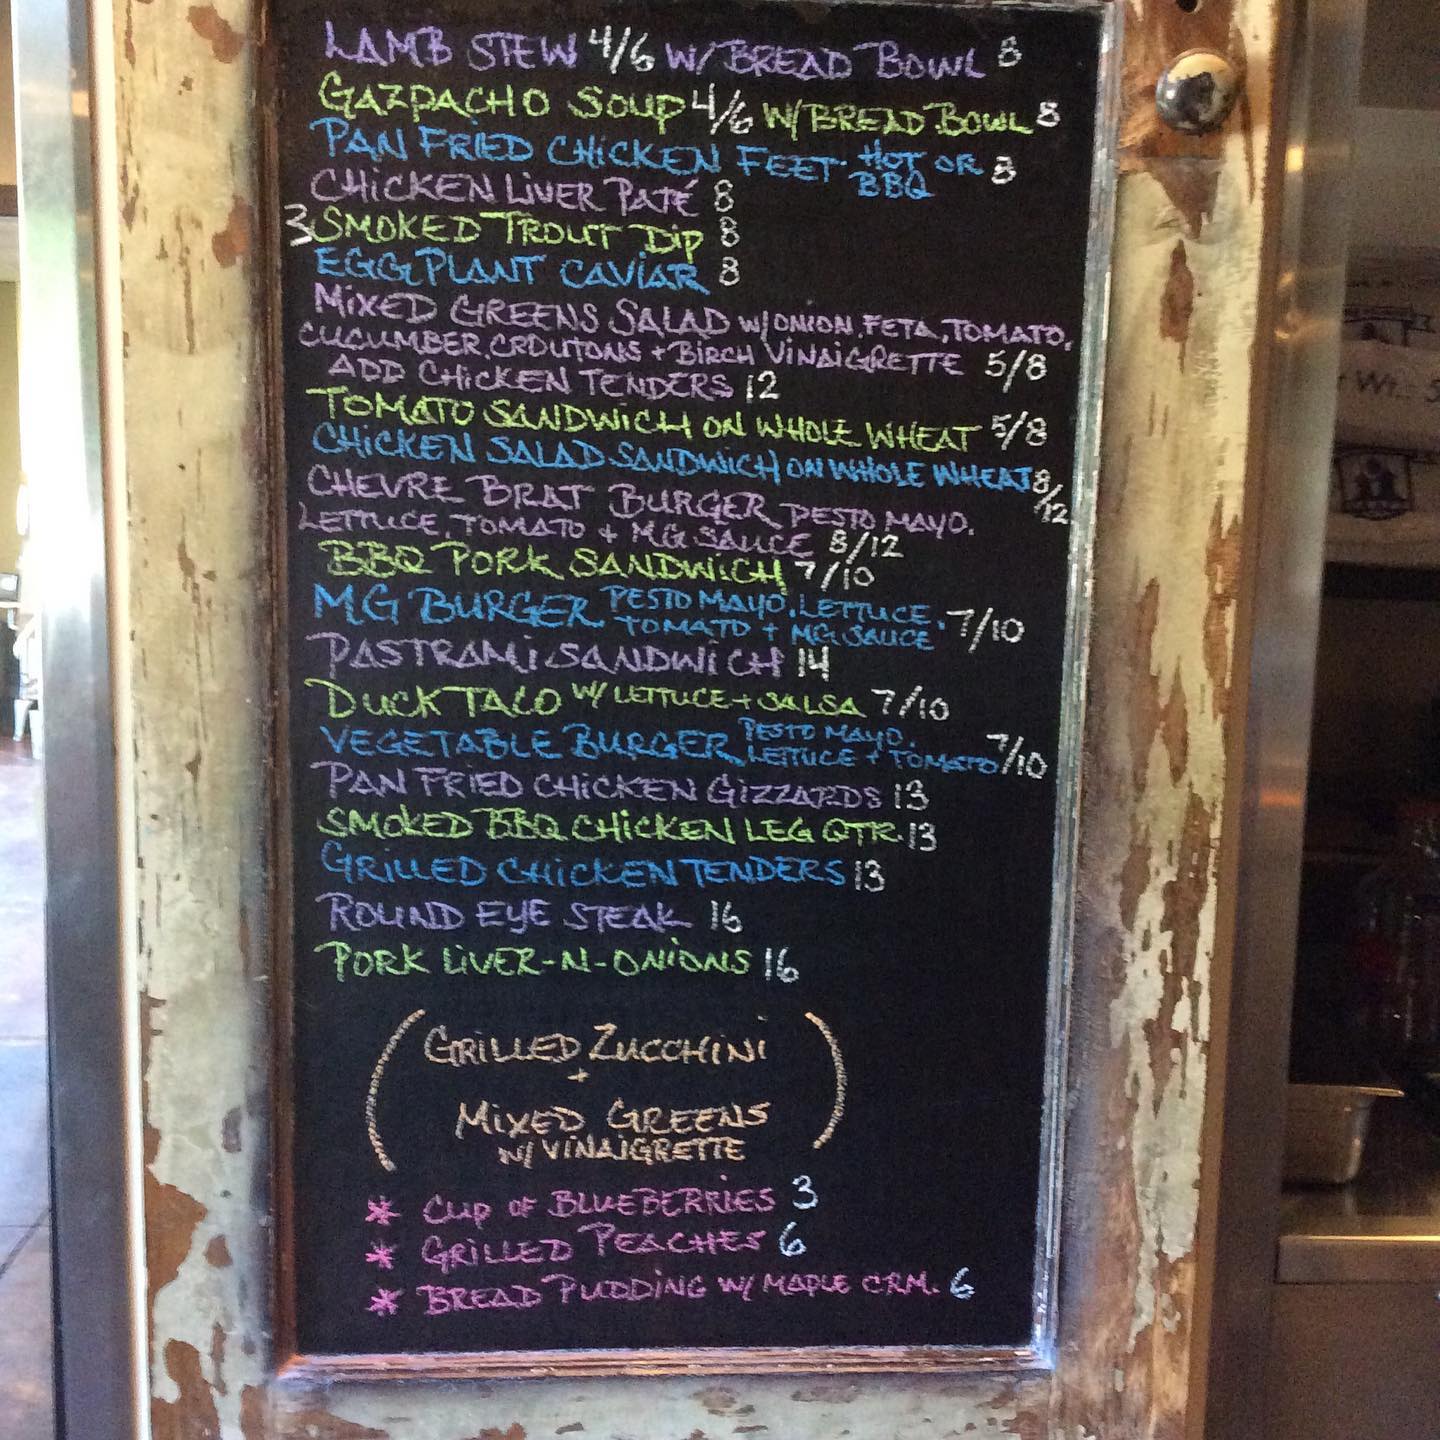 LAMB STEW 4/6 W/ BREAD BOWL 8
GAZPACHO SOUP 4/6 W/ BREAD BOWL 8
PAN FRIED CHICKEN FEET HOT OR BBQ 8
CHICKEN LIVER PATÉ 8
3 SMOKED TROUT DIP 8
EGGPLANT CAVIAR 8
MIXED GREENS SALAD W/ ONION, FETA, TOMATO,
CUCUMBER, CROUTONS + BIRCH VINAIGRETTE 5/8
ADD CHICKEN TENDERS 12
TOMATO SANDWICH ON WHOLE WHEAT 5/8
CHICKEN SALAD SANDWICH ON WHOLE WHEAT 8/12
CHEVRE BRAT BURGER PESTO MAYO,
LETTUCE, TOMATO + MG SAUCE 8/12
BBQ PORK SANDWICH 7/10
MG BURGER PESTO MAYO, LETTUCE,
TOMATO + MG SAUCE 7/10
PASTRAMI SANDWICH 14
DUCK TACO W/ LETTUCE + SALSA 7/10
VEGETABLE BURGER PESTO MAYO,
LETTUCE + TOMATO 7/10
PAN FRIED CHICKEN GIZZARDS 13
SMOKED BBQ CHICKEN LEG QTR. 13
GRILLED CHICKEN TENDERS 13
ROUND EYE STEAK 16
PORK LIVER-N-ONIONS 16
(GRILLED ZUCCHINI
+
MIXED GREENS
W/ VINAIGRETTE)
* CUP OF BLUEBERRIES 3
* GRILLED PEACHES 6
* BREAD PUDDING W/ MAPLE CRM. 6